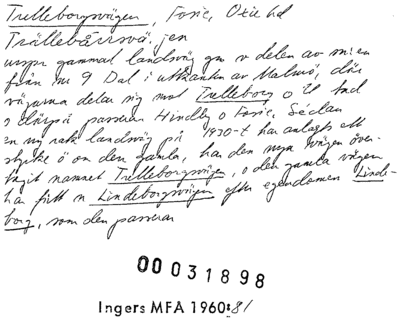 Trelleborgsvägen, Fosie, Oxie hd
Trällebårsvä.jen
urspr gammal landsväg gm v delen av m:en
från nr 9 Dal i utkanten av Malmö, där
vägarna delar sig mot Trelleborg o
o därpå passerar Hindby o Fosie. Sedan
en ny rak landsväg på 1930-t har anlagts ett
stycke ö om den gamla, har den nya vägen över-
tagit namnet Trelleborgsvägen, o den gamla vägen
har fått n Lindeborgsvägen efter egendomen Linde-
borg, som den passerar
00031898
Ingers MFA 1960:81